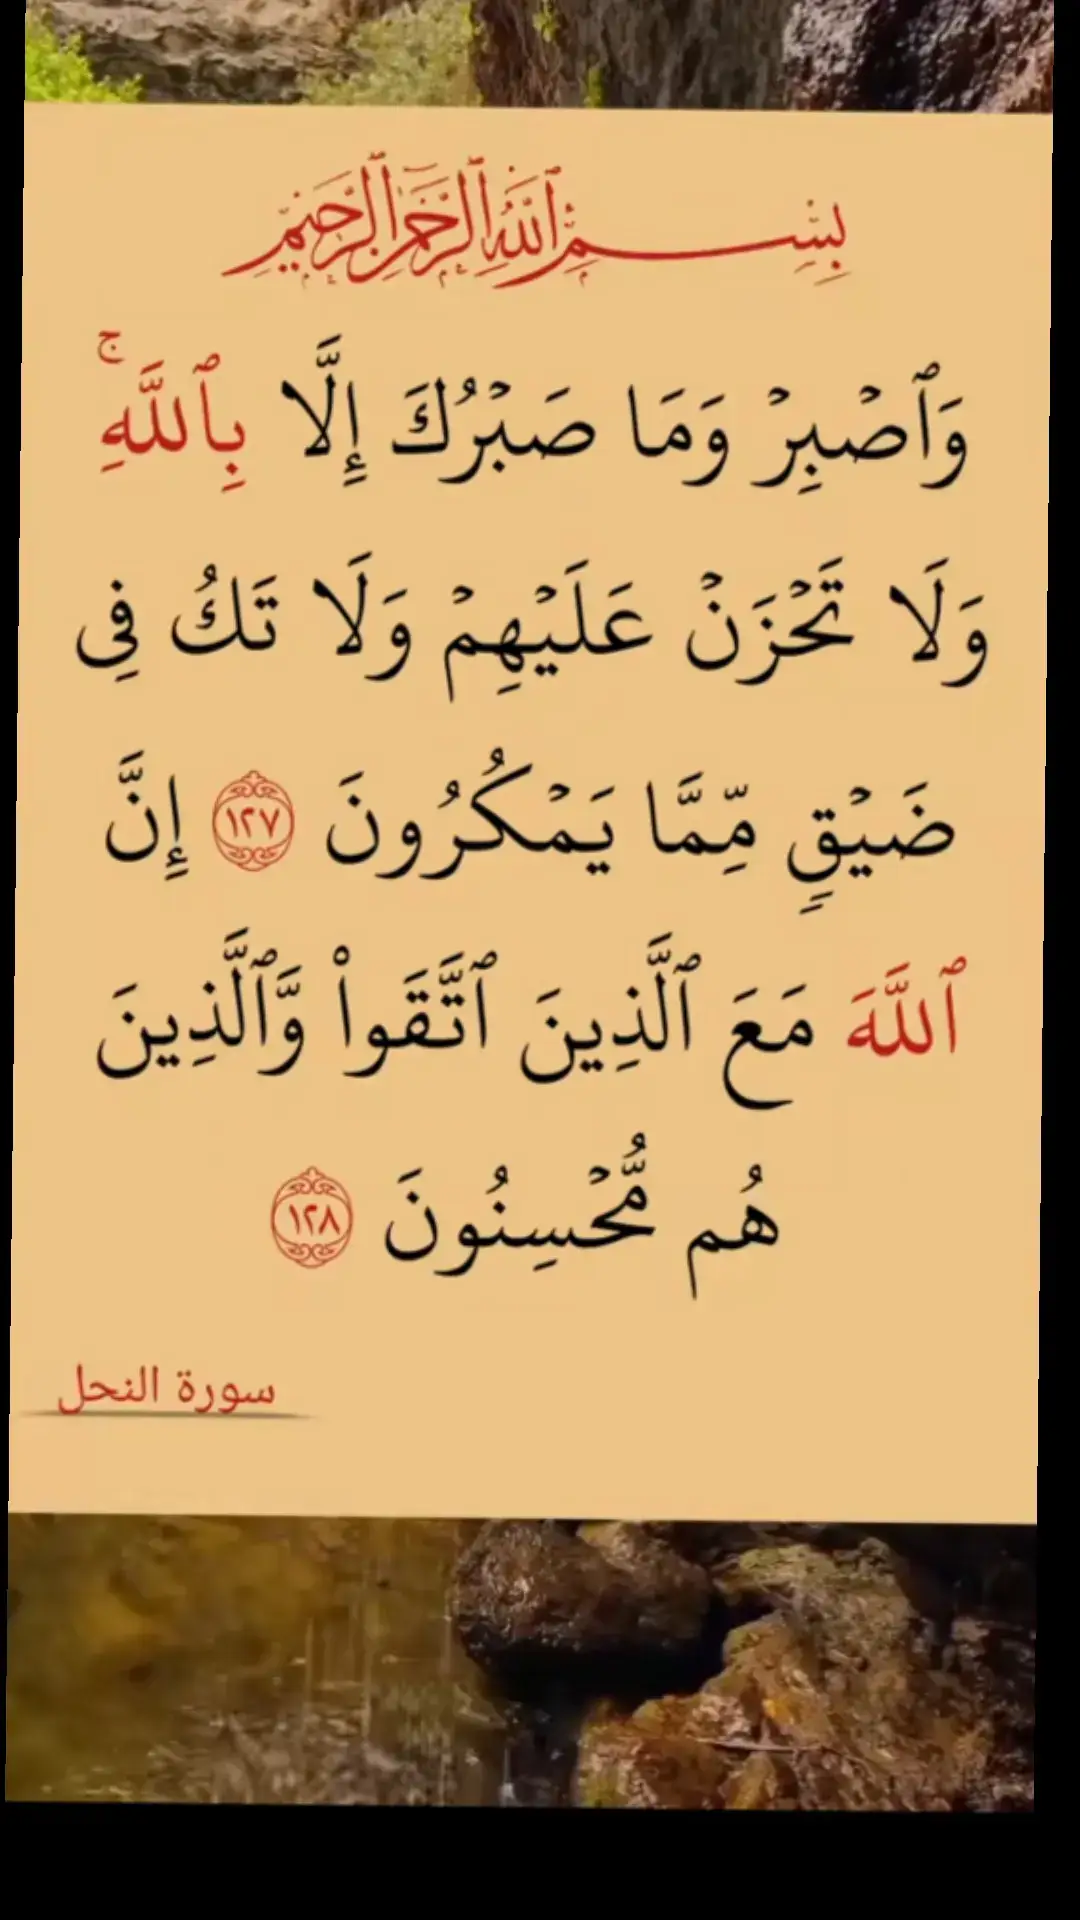 بِسْمِ ٱللَّهِ ٱلرَّحْمَٰنِ ٱلرَّحِيمِ
وَٱصْبِرْ وَمَا صَبْرُكَ إِلَّا بِٱللَّهِ ۚ
وَلَا تَحْزَنْ عَلَيْهِمْ وَلَا تَكُ فِى
ضَيْقٍ مِّمَّا يَمْكُرُونَ ١٢٧ إِنَّ
ٱللَّهَ مَعَ ٱلَّذِينَ ٱتَّقَوا۟ وَّٱلَّذِينَ
هُم مُّحْسِنُونَ ١٢٨
سورة النحل